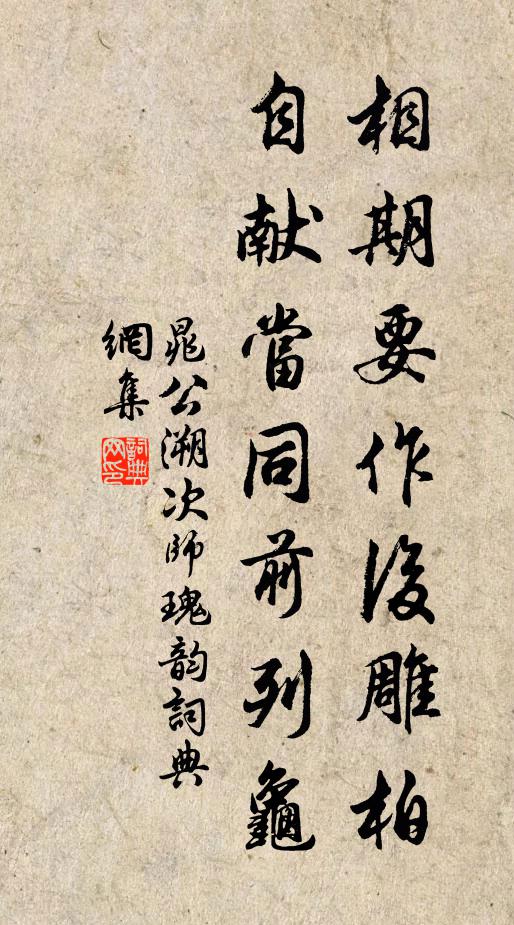 相期要作後雕柏
自献當同前列龜
晁公溯次師瑰韵詞典
網集
詞典網印